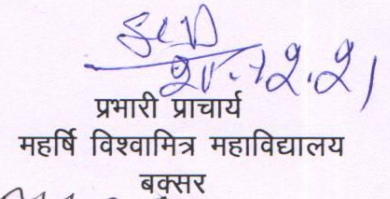 प्रभारी प्राचार्य
महर्षि विश्वामित्र महाविद्यालय
बक्सर